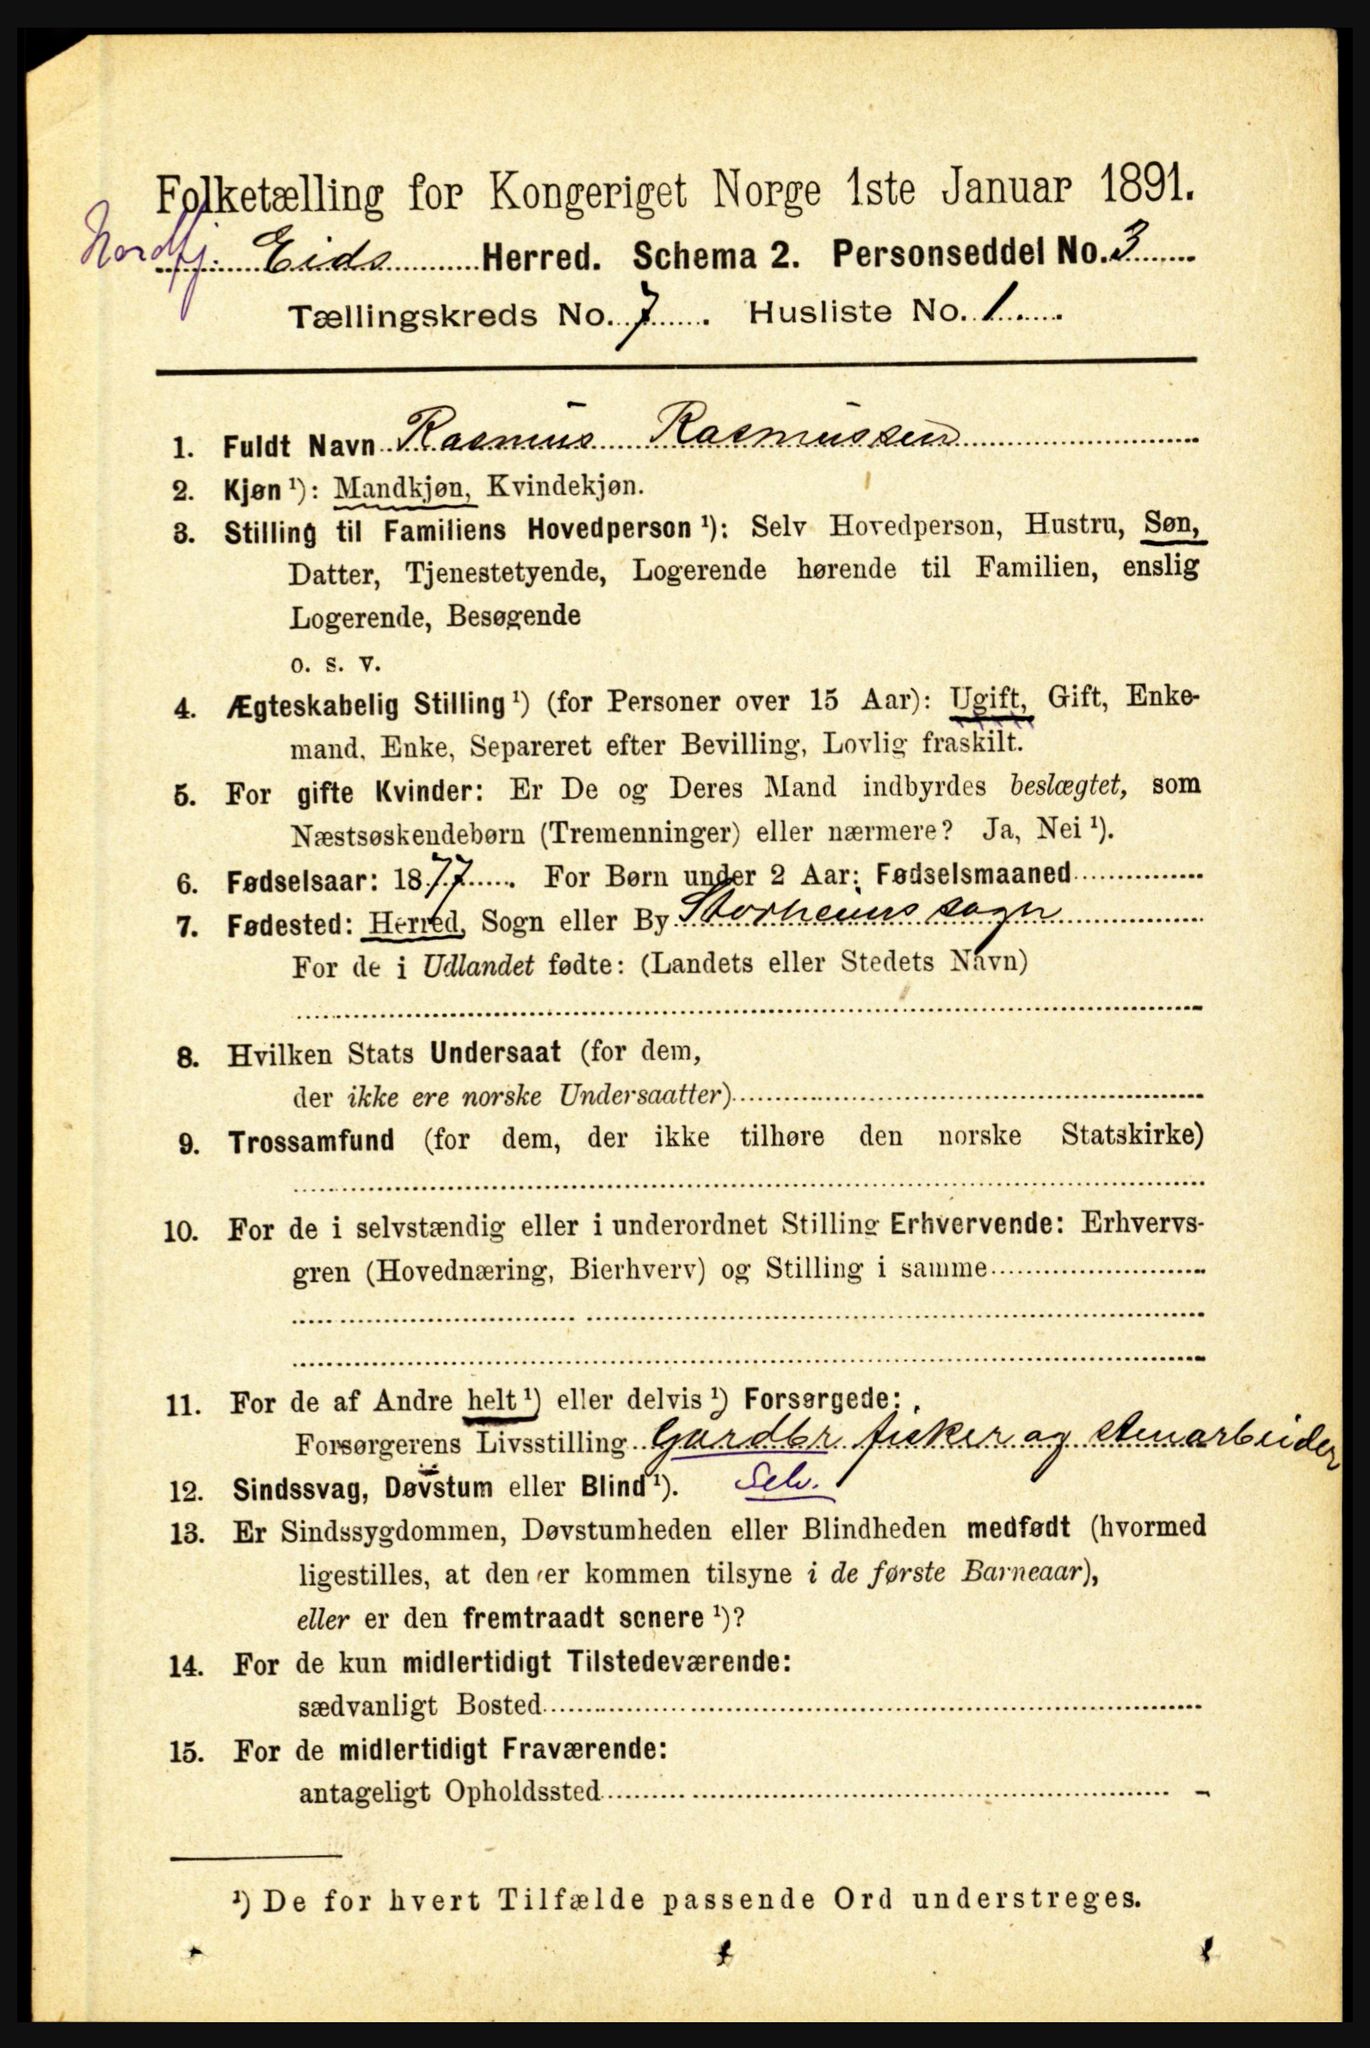 Folketælling for Kongeriget Norge 1ste Januar 1891.
Nordfj. Eids Herred. Schema 2. Personseddel No. 3
Tællingskreds No. 7. Husliste No. 1.
1. Fuldt Navn Rasmus Rasmussen
2. Kjøn ¹): Mandkjøn, Kvindekjøn.
3. Stilling til Familiens Hovedperson ¹): Selv Hovedperson, Hustru, Søn,
Datter, Tjenestetyende, Logerende hørende til Familien, enslig
Logerende, Besøgende
o. s. v.
4. Ægteskabelig Stilling ¹) (for Personer over 15 Aar): Ugift, Gift, Enke-
mand, Enke, Separeret efter Bevilling, Lovlig fraskilt.
5. For gifte Kvinder: Er De og Deres Mand indbyrdes beslægtet, som
Næstsøskendebørn (Tremenninger) eller nærmere? Ja, Nei ¹).
6. Fødselsaar: 1877. For Børn under 2 Aar: Fødselsmaaned
7. Fødested: Herred, Sogn eller By Storheims sogn
For de i Udlandet fødte: (Landets eller Stedets Navn)
8. Hvilken Stats Undersaat (for dem,
der ikke ere norske Undersaatter)
9. Trossamfund (for dem, der ikke tilhøre den norske Statskirke)
10. For de i selvstændig eller i underordnet Stilling Erhvervende: Erhvervs-
gren (Hovednæring, Bierhverv) og Stilling i samme
11. For de af Andre helt ¹) eller delvis ¹) Forsørgede:
Forsørgerens Livsstilling Gardbr fisker og Stenarbeider
12. Sindssvag, Døvstum eller Blind ¹). Selv.
13. Er Sindssygdommen, Døvstumheden eller Blindheden medfødt (hvormed
ligestilles, at den er kommen tilsyne i de første Barneaar),
eller er den fremtraadt senere ¹)?
14. For de kun midlertidigt Tilstedeværende:
sædvanligt Bosted
15. For de midlertidigt Fraværende:
antageligt Opholdssted
¹) De for hvert Tilfælde passende Ord understreges.